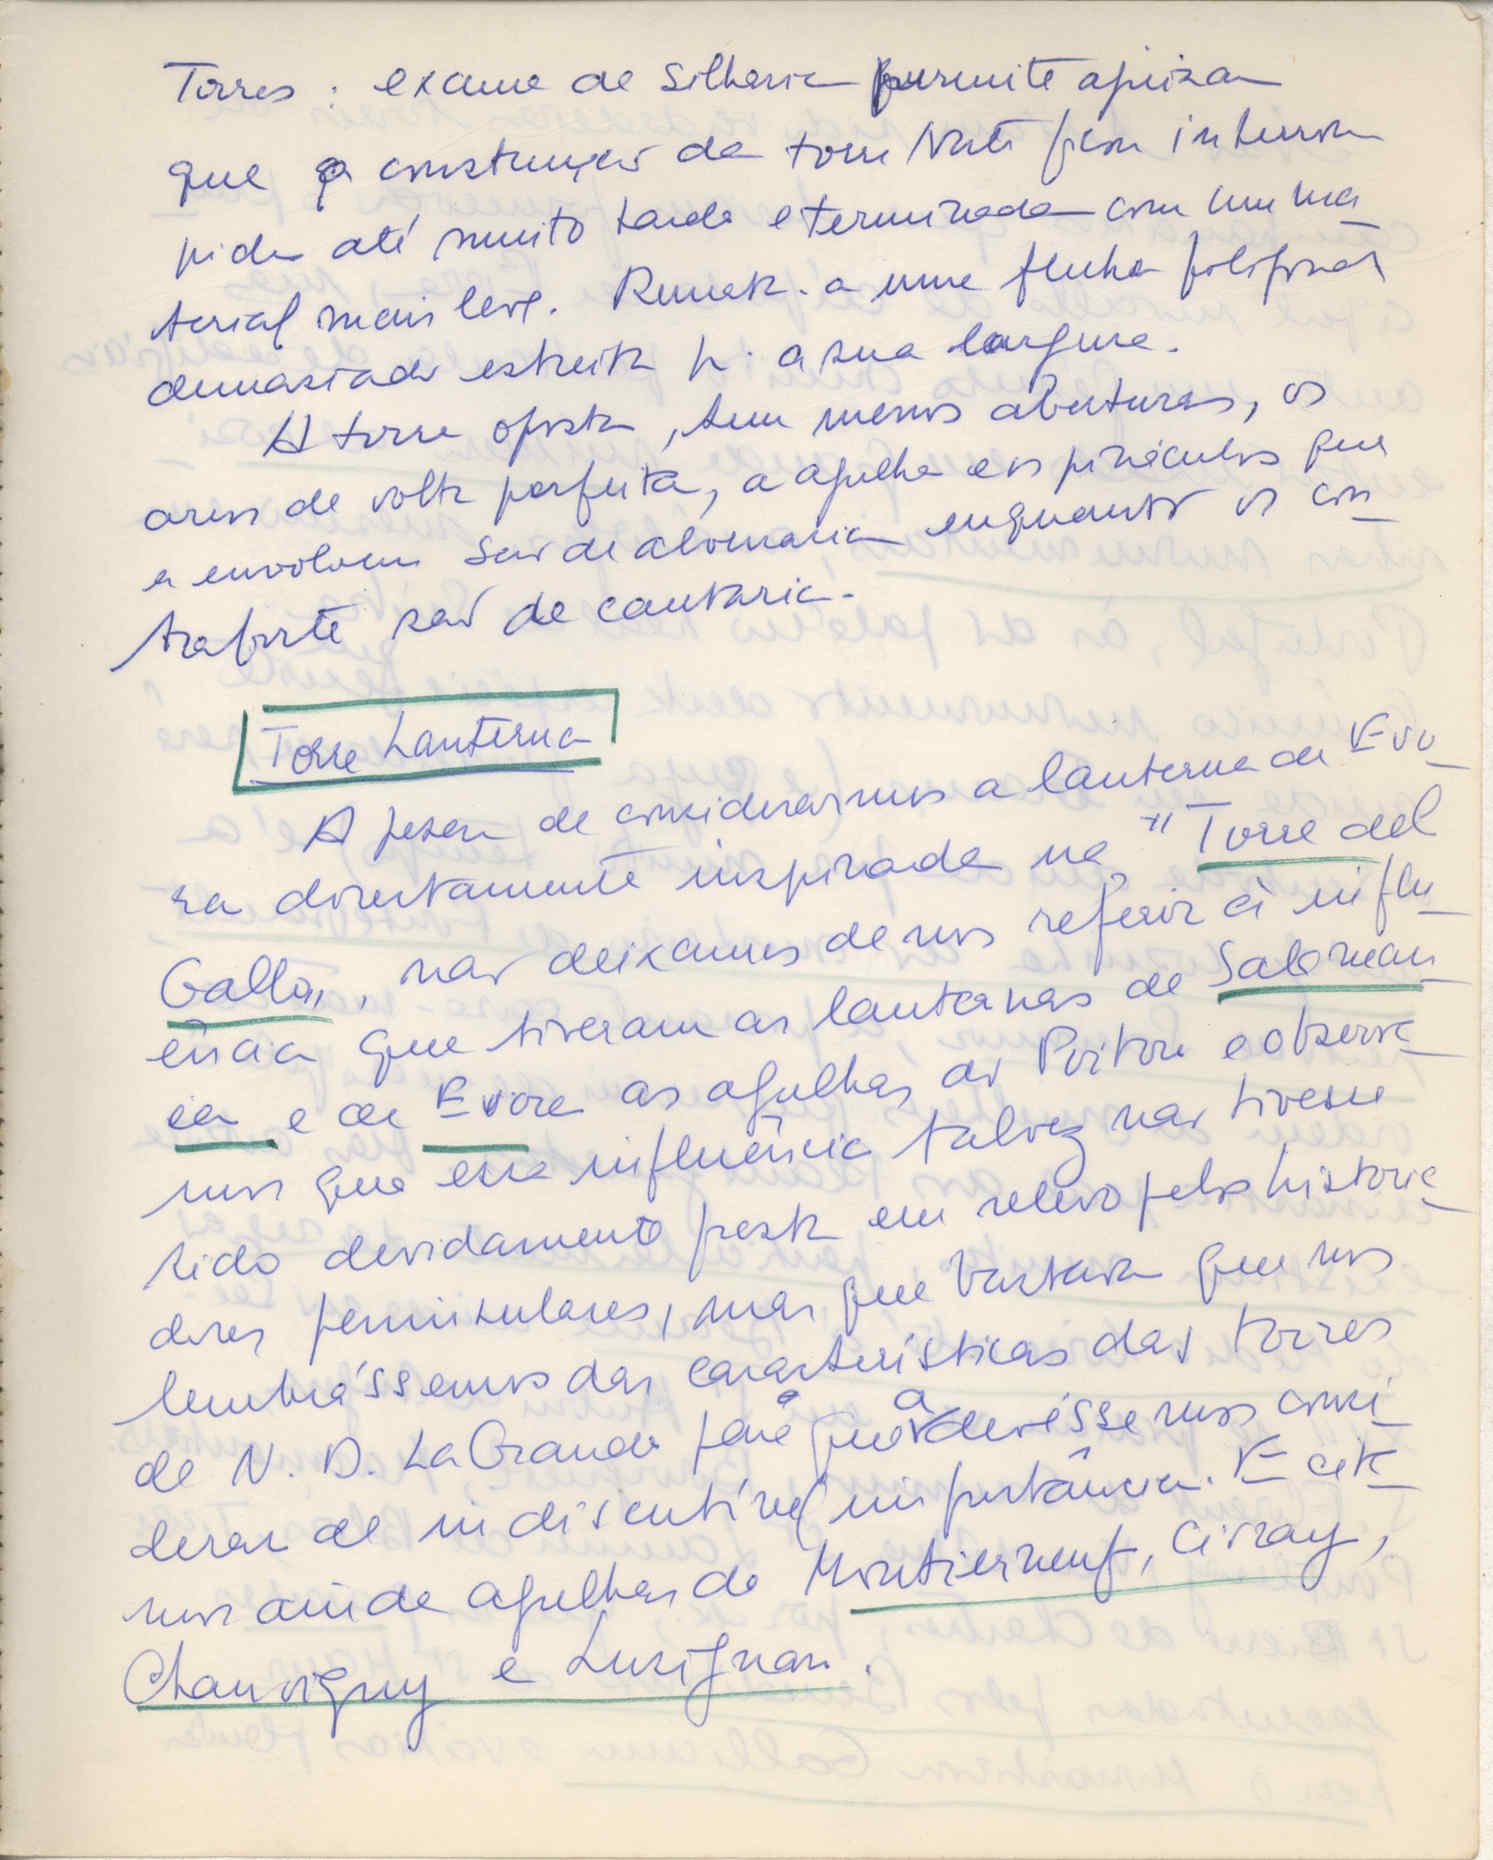 Torres : exame de silharia permite ajuizar
que a construção da torre Norte ficou interrom
pida até muito tarde e terminada com um ma_
terial mais leve. Remat. a uma flecha poligonal
demasiado estreita p. a sua largura.
A torre oposta, tem menos aberturas, os
arcos de volta perfeita, a agulha e os pináculos que
a envolvem são de alvenaria enquanto os con_
traforte são de cantaria.
Torre Lanterna
Apesar de considerarmos a lanterna de Evo_
ra directamente inspirada na "Torre del
Gallo", não deixamos de nos referir à influ_
ência que tiveram as lanternas de Salaman_
ca e de Evora as agulhas do Poitou e observa_
mos que essa influência talvez não tivesse
sido devidamente posta em relevo pelos historia_
dores peninsulares, mas que bastava que nos
lembrássemos das características das torres
de N. D. La Grande para que a devêssemos consi_
derar de indiscutível importância. E cita_
mos ainda agulhas de Montierneuf, Civray,
Chauvigny e Lusignan.